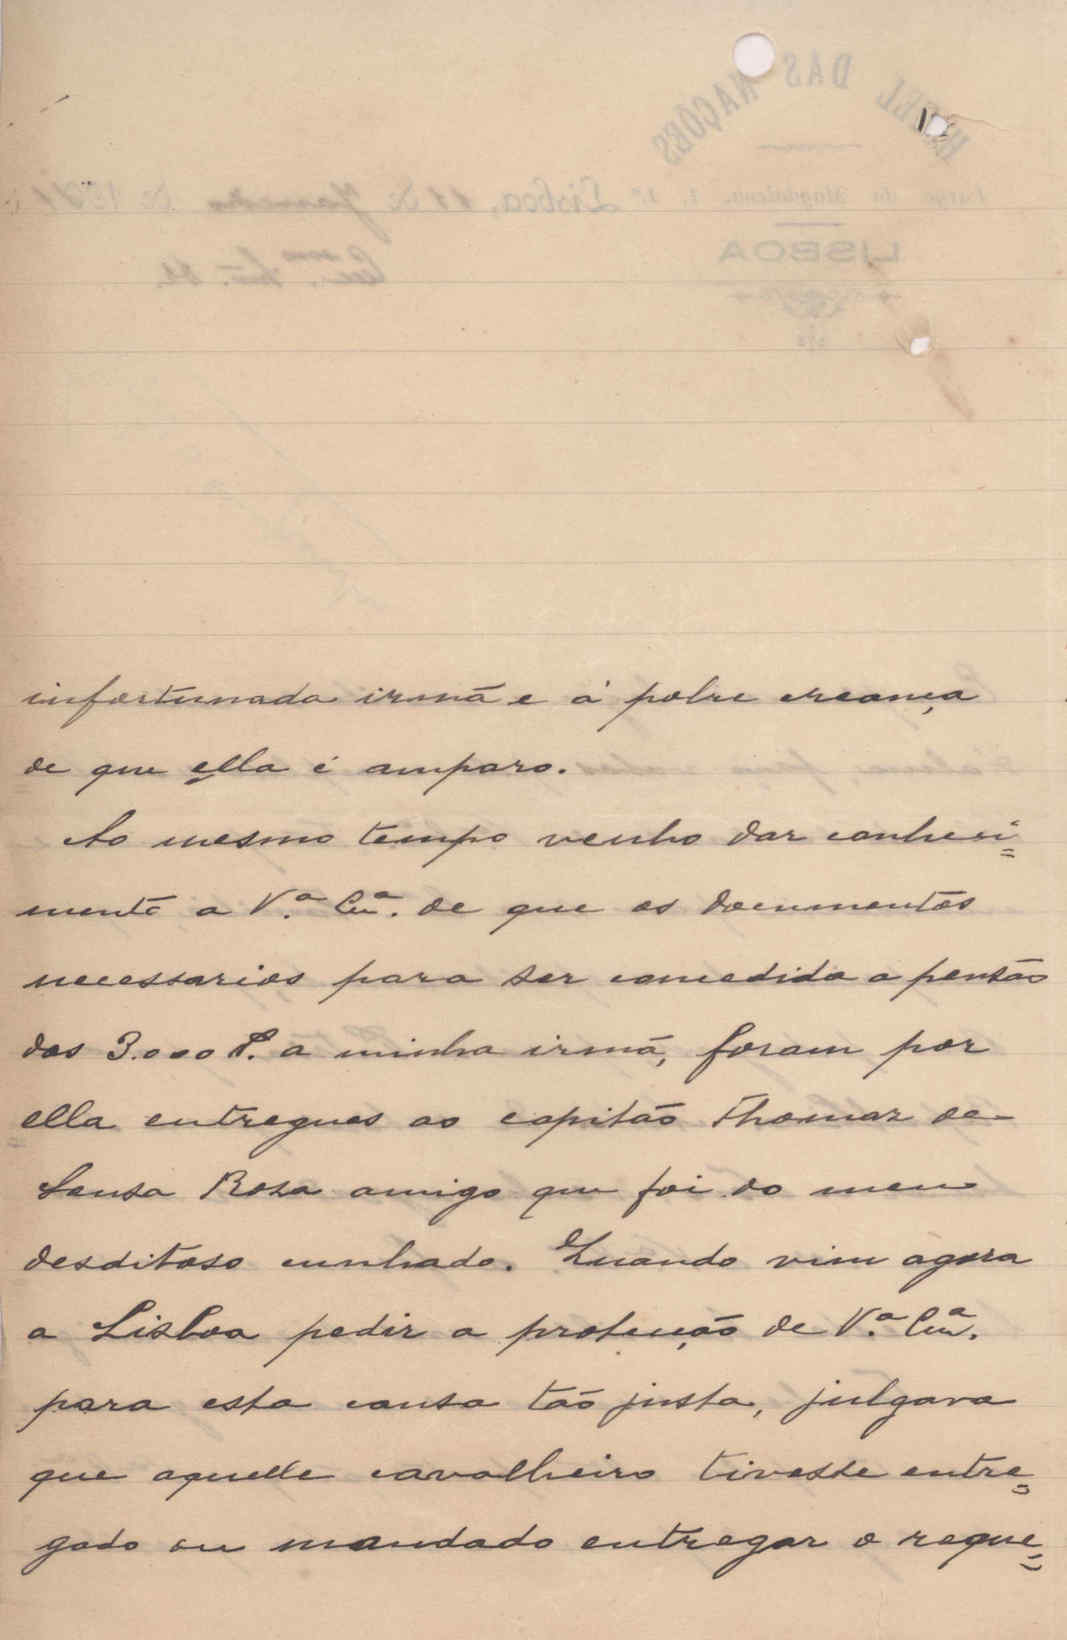 infortunada irmã e á pobre creança
de que ella é amparo.
Ao mesmo tempo venho dar conheci=
mento a V.ª Exª. de que os documentos
necessarios para ser concedida a pensão
dos 3.000 P. a minha irmã, foram por
ella entregues ao capitão Thomaz de
Sousa Rosa amigo que foi do meu
desditoso cunhado. Quando vim agora
a Lisboa pedir a protecção de V.ª Exª.
para esta causa tão justa, julgava
que aquelle cavalheiro tivesse entre=
gado ou mandado entregar o reque=